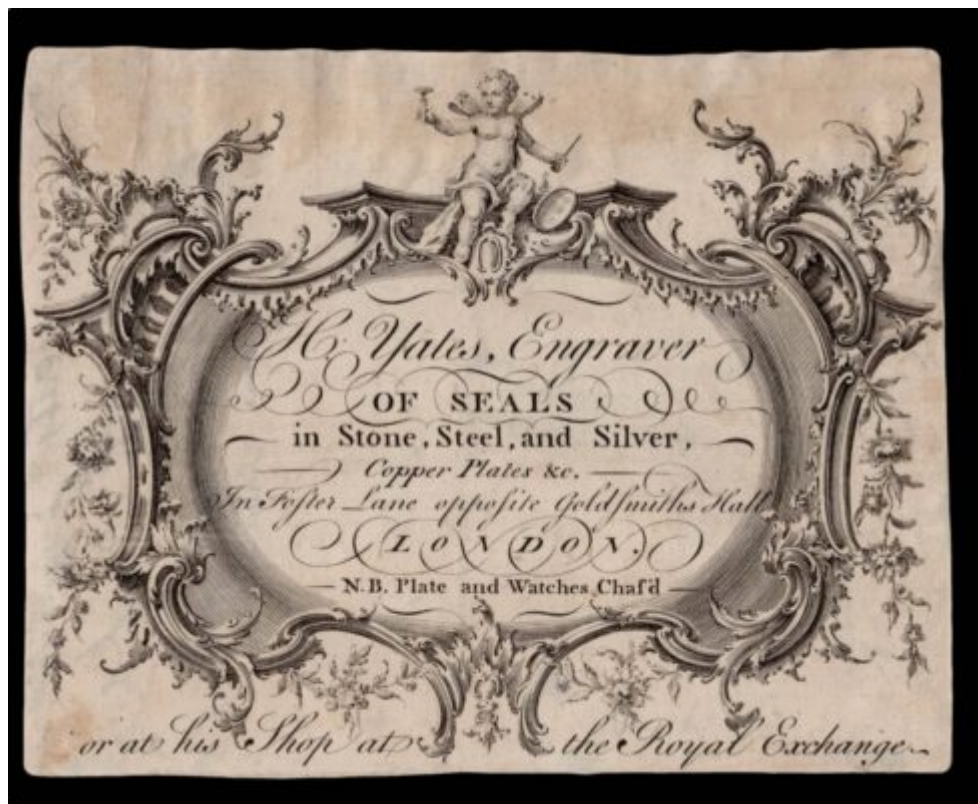 H. Yates, Engraver
OF SEALS
in Stone, Steel, and Silver,
Copper Plates &c.
In Foster Lane opposite Goldsmiths Hall
LONDON.
N.B. Plate and Watches Chas'd
or at his Shop at the Royal Exchange